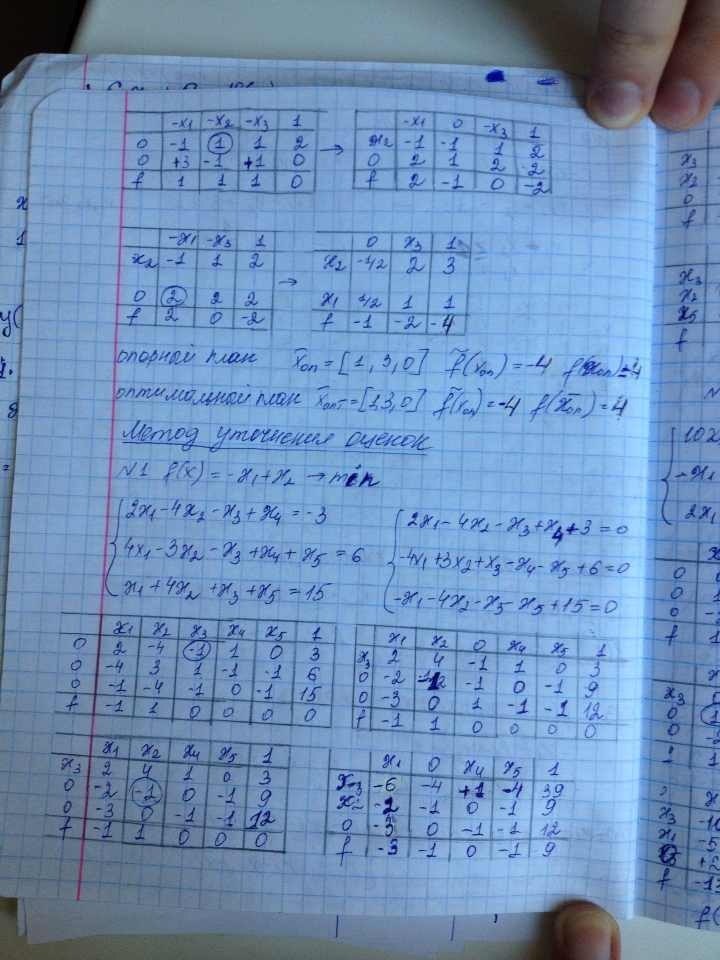 -x1 -x2 -x3 1
0 -1 1 1 2
0 +3 -1 +1 0
f 1 1 1 0
→
-x1 0 -x3 1
x2 -1 -1 1 2
0 2 1 2 2
f 2 -1 0 -2
-x1 -x3 1
x2 -1 1 2
0 2 2 2
f 2 0 -2
→
0 x3 1
x2 2 3
x1 1 1
f -1 -2 -4
опорный план x̄оп = [1, 3, 0] f̃(xоп) = -4
оптимальной план x̄опт = [1,3,0] f̃(xоп) = -4 f(x̄оп) = 4
Метод уточнения оценок
N1 f(x) = -x1 + x2 → min
2x1 - 4x2 - x3 + x4 = -3
4x1 - 3x2 - x3 + x4 + x5 = 6
x1 + 4x2 + x3 + x5 = 15
2x1 - 4x2 - x3 + x4 + 3 = 0
-4x1 + 3x2 + x3 - x4 - x5 + 6 = 0
-x1 - 4x2 - x3 - x5 + 15 = 0
x1 x2 x3 x4 x5 1
0 2 -4 -1 1 0 3
0 -4 3 1 -1 -1 6
0 -1 -4 -1 0 -1 15
f -1 1 0 0 0 0
x1 x2 0 x4 x5 1
x3 2 4 -1 1 0 3
0 -2 -1 0 -1 9
0 -3 0 1 -1 -1 12
f -1 1 0 0 0 0
x1 x2 x4 x5 1
x3 2 4 1 0 3
0 -2 -1 0 -1 9
0 -3 0 -1 -1 12
f -1 1 0 0 0
x1 0 x4 x5 1
x3 -6 -4 +1 -4 39
x2 -2 -1 0 -1 9
0 -3 0 -1 -1 12
f -3 -1 0 -1 9
x3
x2
0
f
x3
x2
x5
f
10x
-x1
2x1
0
0
0
f
x3
0
0
x3 -10
x1 -5
f -13
f(